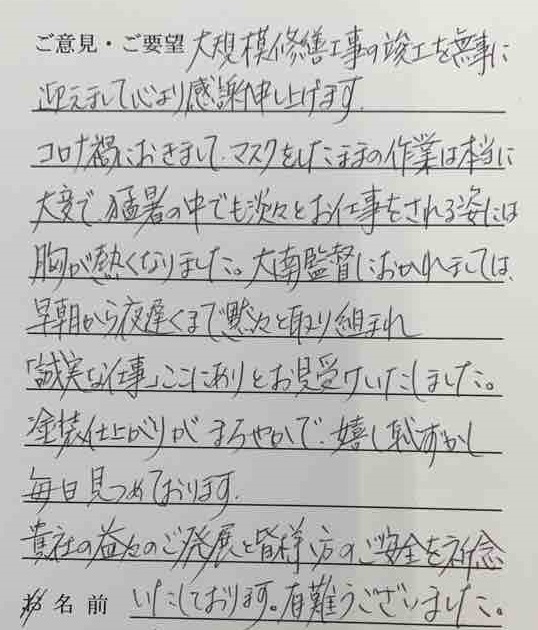 ご意見・ご要望 大規模修繕工事の竣工を無事に
迎えまして心より感謝申し上げます.
コロナ禍におきまして、マスクをしたままの作業は本当に
大変で、猛暑の中でも淡々とお仕事をされる姿には
胸が熱くなりました。大南監督におかれましては、
早朝から夜遅くまで黙々と取り組まれ
「誠実な仕事」ここにありとお見受けいたしました。
塗装仕上がりがまろやかで、嬉し恥ずかし
毎日見つめております.
貴社の益々のご発展と皆様方のご安全を祈念
お名前 いたしております。有難うございました。